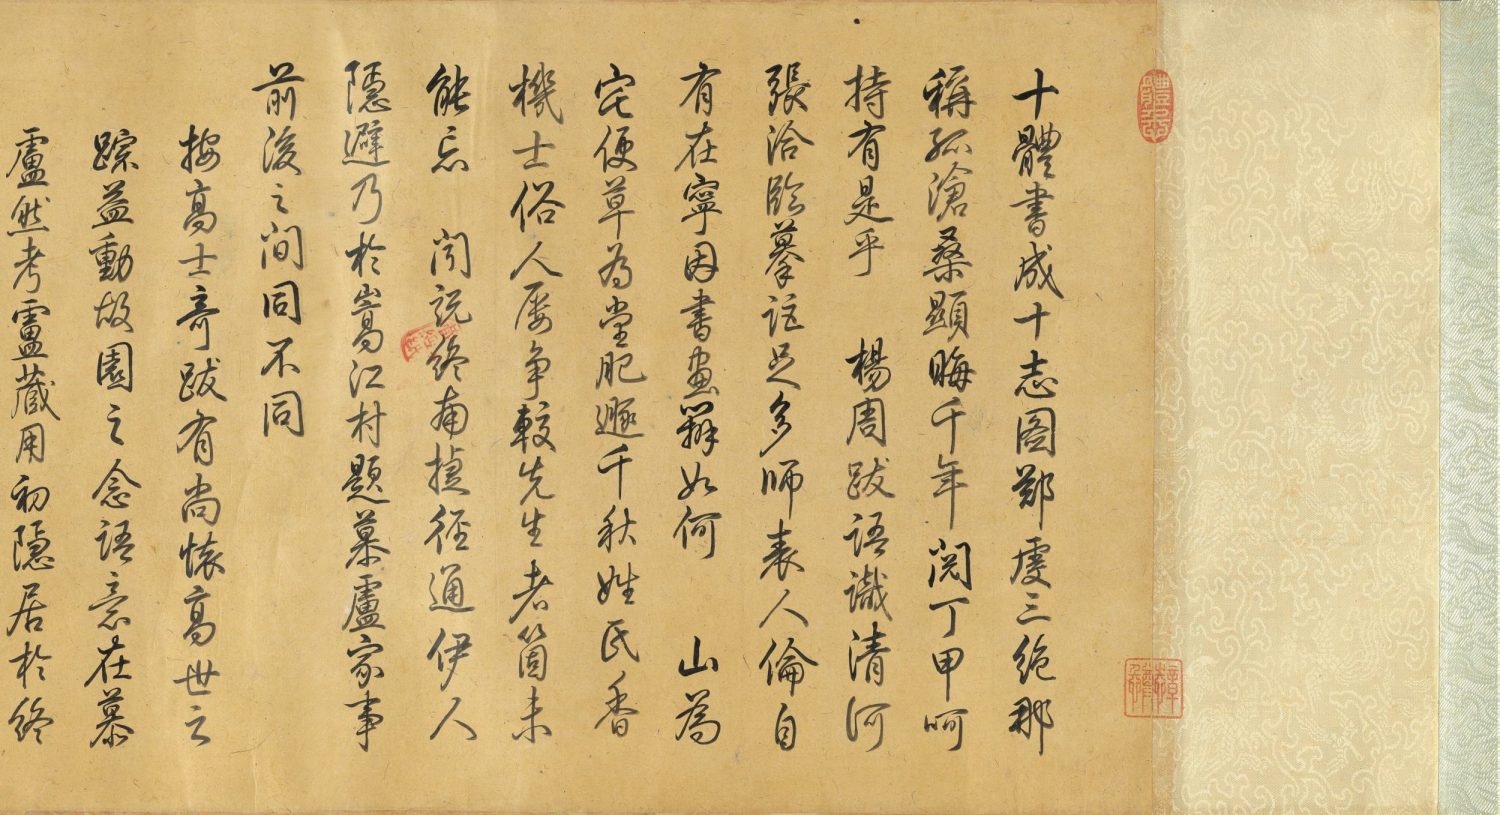 十體書成十志圖鄭虔三絶那
稱孤滄桑顯晦千年閱丁甲呵
持有是乎 楊周跋語識清河
張洽臨摹詎足多師表人倫自
有在寧因書畫辯如何 山為
宅便草為堂肥遯千秋姓氏香
機士俗人屢爭較先生者箇未
能忘 聞説終南捷徑通伊人
隱避乃於嵩江村題慕盧家事
前後之間同不同
按高士奇跋有尚懷高世之
踪益動故園之念語意在慕
盧然考盧藏用初隱居於終